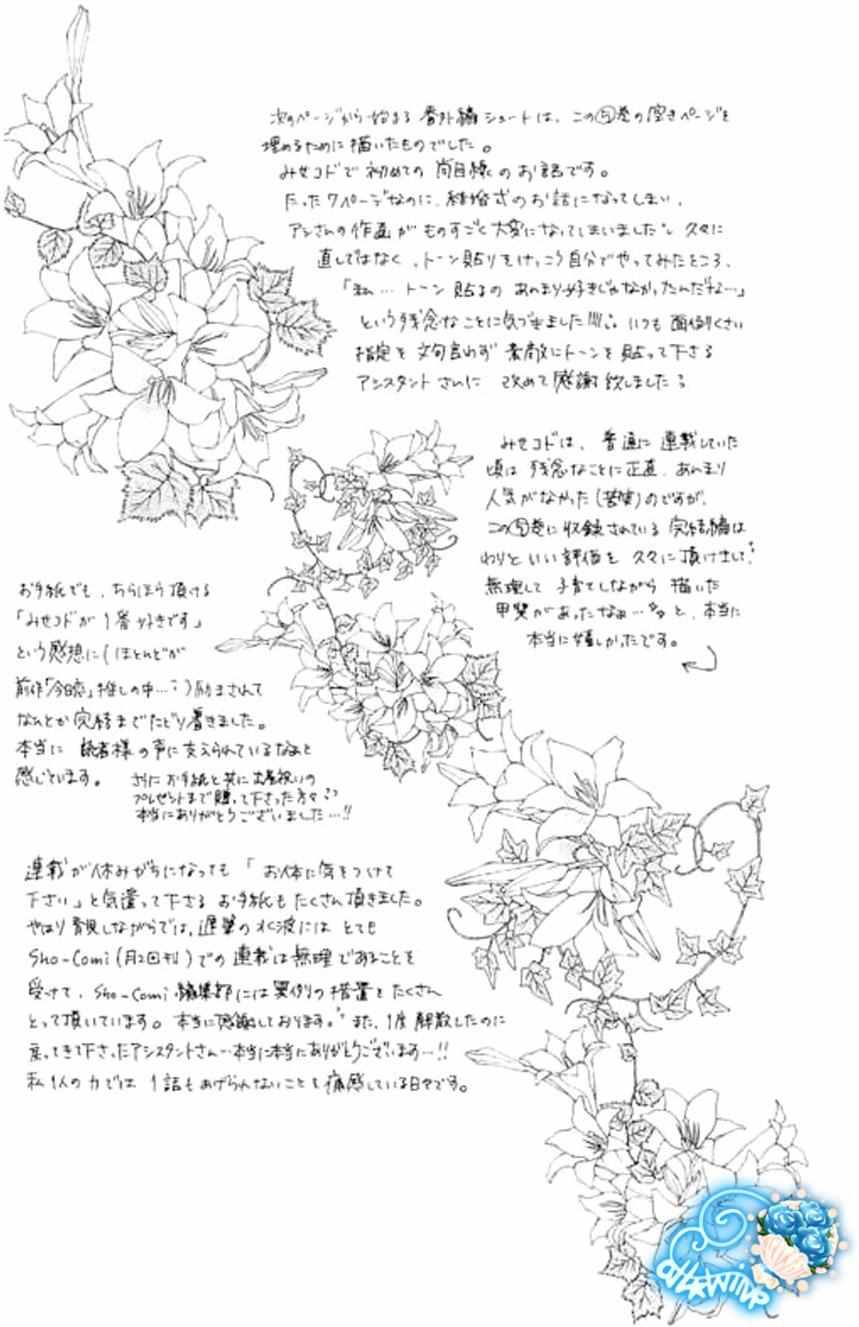 次のページから始まる 番外編ショートは、この⑤巻の空きページを
埋めるために描いたものでした。
みせコドで初めての 尚目線のお話です。
たった7ページなのに、結婚式のお話になってしまい、
アシさんの作画が ものすごく大変になってしまいました 久々に
直しではなく、トーン貼りをけっこう自分でやってみたところ、
「私… トーン貼るの あんまり好きじゃなかったんだね…」
という残念なことに気づきました!!! いつも 面倒くさい
指定を 文句言わず 素敵にトーンを貼って下さる
アシスタントさんに 改めて感謝致しました
みせコドは、普通に 連載していた
頃は 残念なことに正直、あんまり
人気がなかった(苦笑)のですが、
この⑤巻に収録されている 完結編は
わりといい評価を 久々に頂けまして
無理して 子育てしながら 描いた
甲斐があったなぁ… と、本当に
本当に嬉しかったです。
お手紙でも、ちらほら頂ける
「みせコドが1番好きです」
という感想に(ほとんどが
前作「今日恋」推しの中…)励まされて
なんとか完結までたどり着きました。
本当に 読者様の声に支えられているなぁと
感じています。
さらに お手紙と共に 出産祝いの
プレゼントまで贈って下さった方々
本当にありがとうございました…!!
連載が休みがちになっても 「お体に気をつけて
下さい」と気遣って下さる お手紙もたくさん頂きました。
やはり 育児しながらでは、遅筆の水波には とても
Sho-Comi(月2回刊)での 連載は無理であることを
受けて、Sho-Comi編集部には異例の措置をたくさん
とって頂いています。本当に感謝しております。また、1度 解散したのに
戻ってきて下さったアシスタントさん…本当に本当にありがとうございます…!!
私1人の力では 1話もあげられないことを痛感している日々です。